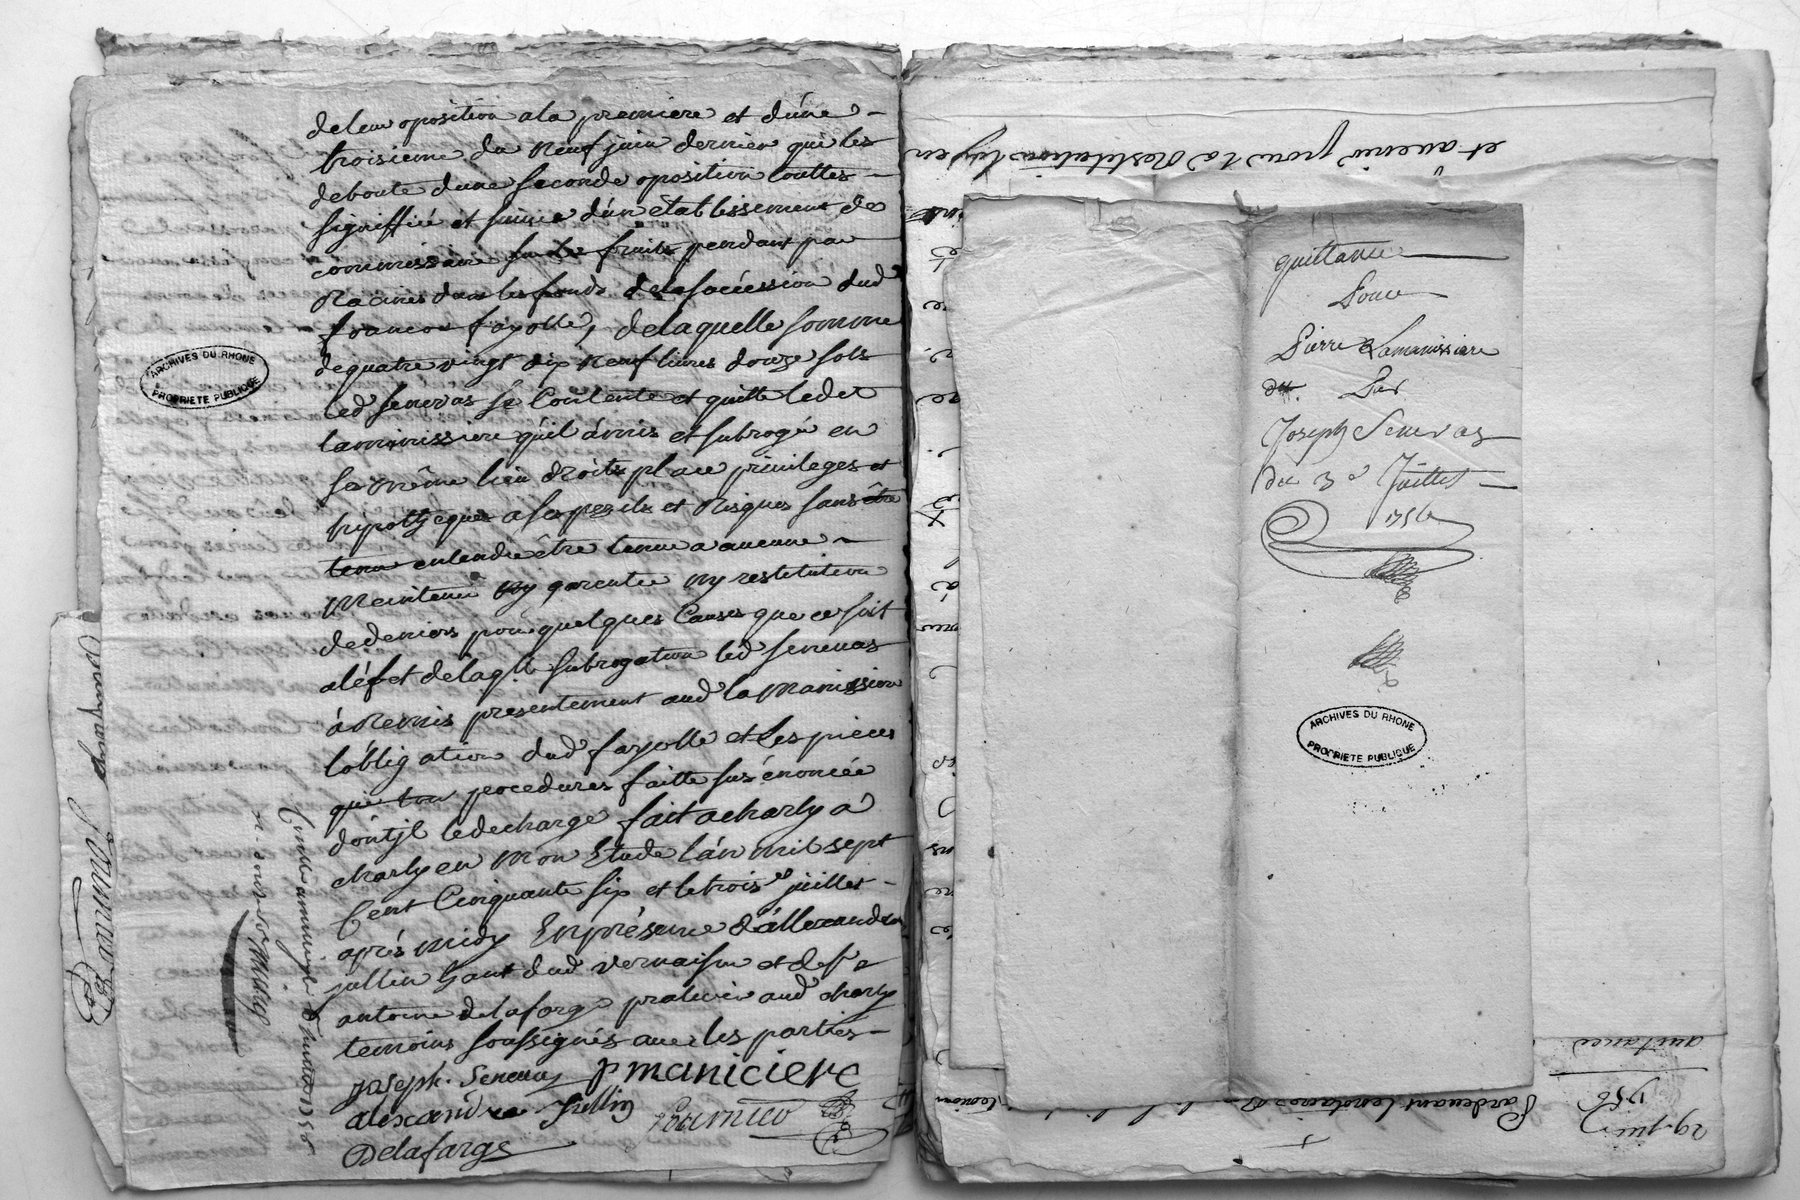 deleur oposition ala premiere et d'une
troisieme du neuf juin dernier qui les
deboute d'une seconde oposition touttes
signiffiée et suivie d'un etablissement de
commissaire sur les fruits pendant par
Racines dans les fonds dela succession dud
francois fayolle, delaquelle somme
de quatre vingt dix neuf livres douze sols
led senevas se Contente et quitte ledit
lamanissiere qu'il à mis et subrogé en
sa même lieu droits place privileges et
hypotheques a ses perils et Risques sans être
tenu entendu être tenu a aucune
Maintenue ny garentie ny restitution
de deniers pour quelques Causes que ce soit
a léfet de laq.lle subrogation led senevas
à Remis presentement aud la manissiere
l'obligation dud fayolle et les pieces
que procedures faitte sus énoncée
dont jl le decharge fait a charly a
charly en mon Etude l'an mil sept
Cent Cinquante six et le trois.e juillet
après midy En présence d'allexandre
jullin dud vernaison et de s.r
antoine delaforge praticien aud charly
temoins soussignés avec les parties
joseph. Senevas pmaniciere
alexandre jullin
Delafarge
ARCHIVES DU RHONE
PROPRIETE PUBLIQUE
et avenir pour la Restitution
quittance
Pour
Pierre Lamanissiere
Par
Joseph Senevas
du 3e Juillet
1756
ARCHIVES DU RHONE
PROPRIETE PUBLIQUE
quitance
1756
29 juin